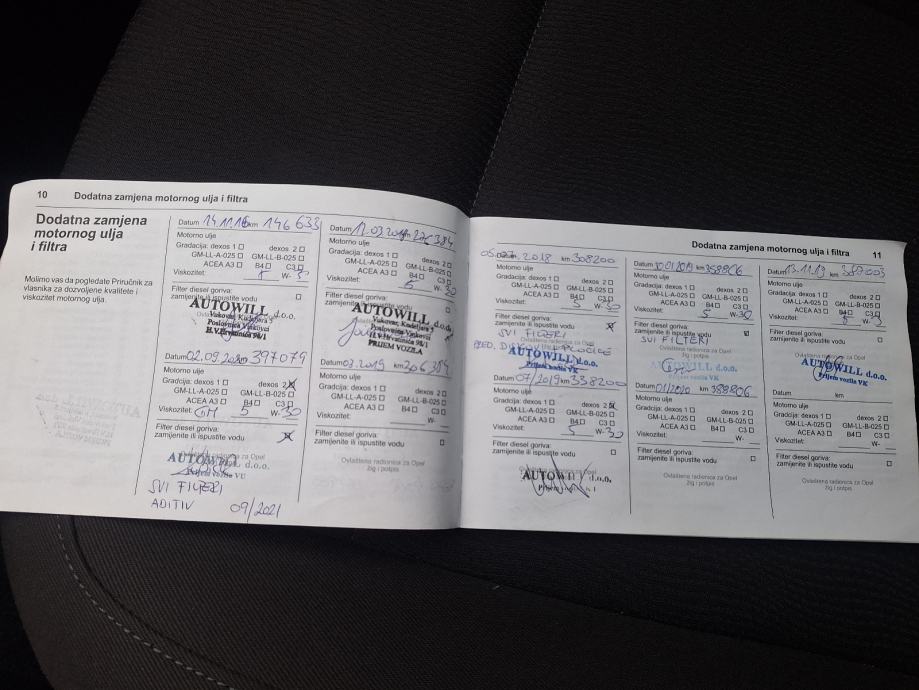 10 Dodatna zamjena motornog ulja i filtra
Dodatna zamjena
motornog ulja
i filtra
Molimo vas da pogledate Priručnik za
vlasnika za dozvoljene kvalitete i
viskozitet motornog ulja.
Datum 14.11.16 km 146 633
Motorno ulje
Gradacija: dexos 1 dexos 2
GM-LL-A-025 GM-LL-B-025
ACEA A3 B4 C3
Viskozitet: 5 W-
Filter diesel goriva:
zamijenite ili ispustite vodu
AUTOWILL d.o.o.
Vukovar, Kudeljara 5
Poslovnica Vinkovci
H.V.Hrvatinića 98/1
Datum 02.09. km 397079
Motorno ulje
Gradcija: dexos 1 dexos 2
GM-LL-A-025 GM-LL-B-025
ACEA A3 B4 C3
Viskozitet: GM 5 W-30
Filter diesel goriva:
zamijenite ili ispustite vodu
AUTOWILL d.o.o.
SVI FILTERI
ADITIV 09/2021
Datum km
Motorno ulje
Gradacija: dexos 1 dexos 2
GM-LL-A-025 GM-LL-B-025
ACEA A3 B4 C3
Viskozitet: 5 W-30
Filter diesel goriva:
zamijenite ili ispustite vodu
AUTOWILL d.o.o.
Vukovar, Kudeljara 5
Poslovnica Vinkovci
H.V.Hrvatinića 98/1
PRIJEM VOZILA
Datum 03.2019 km
Motorno ulje
Gradacija: dexos 1 dexos 2
GM-LL-A-025 GM-LL-B-025
ACEA A3 B4 C3
Viskozitet: W-
Filter diesel goriva:
zamijenite ili ispustite vodu
Ovlaštena radionica za Opel
žig i potpis
Dodatna zamjena motornog ulja i filtra 11
2018 km 308200
Motorno ulje
Gradacija: dexos 1 dexos 2
GM-LL-A-025 GM-LL-B-025
ACEA A3 B4 C3
Viskozitet: 5 W-30
Filter diesel goriva:
zamijenite ili ispustite vodu
SVI FILTERI
PRED. DISKOVI I PLOČICE
AUTOWILL d.o.o.
Prijem vozila VK
Datum 07/2019 km 338200
Motorno ulje
Gradacija: dexos 1 dexos 2
GM-LL-A-025 GM-LL-B-025
ACEA A3 B4 C3
Viskozitet: 5 W-30
Filter diesel goriva:
zamijenite ili ispustite vodu
AUTOWILL d.o.o.
Datum km 358806
Motorno ulje
Gradacija: dexos 1 dexos 2
GM-LL-A-025 GM-LL-B-025
ACEA A3 B4 C3
Viskozitet: 5 W-30
Filter diesel goriva:
zamijenite ili ispustite vodu
SVI FILTERI
AUTOWILL d.o.o.
Prijem vozila VK
Datum 01/2020 km 388806
Motorno ulje
Gradacija: dexos 1 dexos 2
GM-LL-A-025 GM-LL-B-025
ACEA A3 B4 C3
Viskozitet: W-
Filter diesel goriva:
zamijenite ili ispustite vodu
Ovlaštena radionica za Opel
žig i potpis
Datum 13.11.19 km
Motorno ulje
Gradacija: dexos 1 dexos 2
GM-LL-A-025 GM-LL-B-025
ACEA A3 B4 C3
Viskozitet: 5 W-
Filter diesel goriva:
zamijenite ili ispustite vodu
AUTOWILL d.o.o.
Prijem vozila VK
Datum km
Motorno ulje
Gradacija: dexos 1 dexos 2
GM-LL-A-025 GM-LL-B-025
ACEA A3 B4 C3
Viskozitet: W-
Filter diesel goriva:
zamijenite ili ispustite vodu
Ovlaštena radionica za Opel
žig i potpis